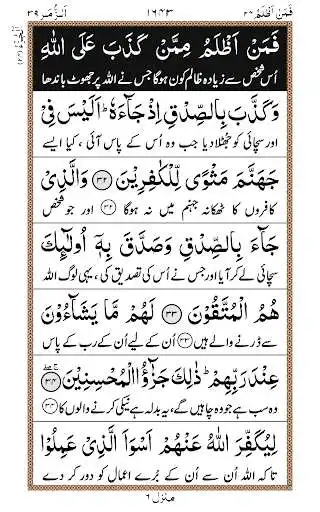 فَمَنْ اَظْلَمُ ٢٤ ١٦٤٣ اَلزُّمَر ٣٩
فَمَنْ اَظْلَمُ مِمَّنْ كَذَبَ عَلَى اللّٰهِ
اُس شخص سے زیادہ ظالم کون ہوگا جس نے اللہ پر جھوٹ باندھا
وَكَذَّبَ بِالصِّدْقِ اِذْ جَآءَهٗ ؕ اَلَيْسَ فِىْ
اور سچائی کو جھٹلا دیا جب وہ اُس کے پاس آئی ، کیا ایسے
جَهَنَّمَ مَثْوًى لِّلْكٰفِرِيْنَ ﴿٣٢﴾ وَالَّذِىْ
کافروں کا ٹھکانہ جہنم میں نہ ہوگا ﴿٣٢﴾ اور جو شخص
جَآءَ بِالصِّدْقِ وَصَدَّقَ بِهٖۤ اُولٰٓئِكَ
سچائی لے کر آیا اور جس نے اُس کی تصدیق کی ، یہی لوگ اللہ
هُمُ الْمُتَّقُوْنَ ﴿٣٣﴾ لَهُمْ مَّا يَشَآءُوْنَ
سے ڈرنے والے ہیں ﴿٣٣﴾ اُن کے لیے اُن کے رب کے پاس
عِنْدَ رَبِّهِمْ ؕ ذٰلِكَ جَزٰٓؤُا الْمُحْسِنِيْنَ ﴿٣٤﴾
وہ سب ہے جو وہ چاہیں گے، یہ بدلہ ہے نیکی کرنے والوں کا ﴿٣٤﴾
لِيُكَفِّرَ اللّٰهُ عَنْهُمْ اَسْوَاَ الَّذِىْ عَمِلُوْا
تا کہ اللہ اُن سے اُن کے بُرے اعمال کو دور کر دے
منزل ٦